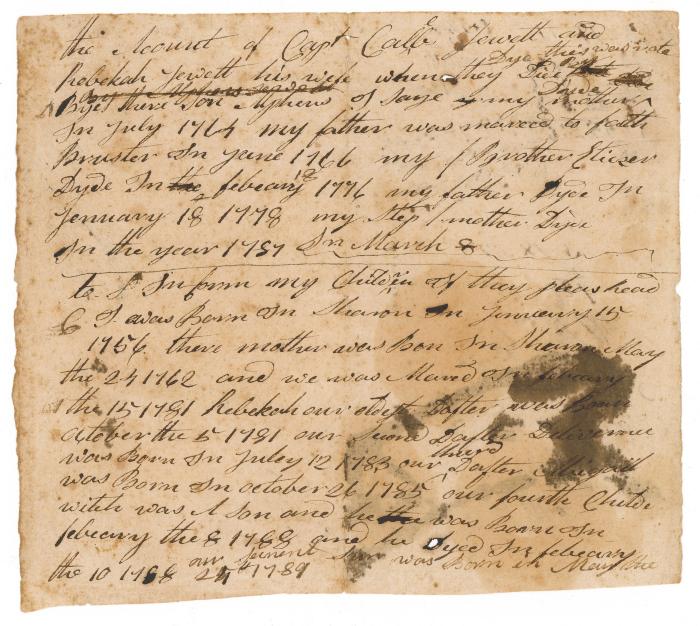 the Acount of Capt Caleb Jewett and
Rebekah Jewett his wife when they Dyde this was rote
By there Son Alpheus of Saye my mother Dyde
In July 1764 my father was mareed to faith
Bruster In June 1766 my Brother Eliezer
Dyde In febeary 1776 my father Dyde In
Jenuary 18 1778 my Step mother Dyde
In the year 1787 In March
to Inform my Children if they pleas head
I was Born In Sharon In Jenuary 15
1756 there mother was Born In Sharon May
the 24 1762 and we was Mared In febeary
the 15 1781 Rebekah our oldest Dafter was Born
october the 5 1781 our Second Dafter Deliverence
was Born In July 12 1783 our third Dafter Abigail
was Born In october 26 1785 our fourth Childe
witch was A Son and he was Born In
febeary the 8 1788 and he Dyed In febeary
the 10 1788 our Son was Born in May the
24 1789